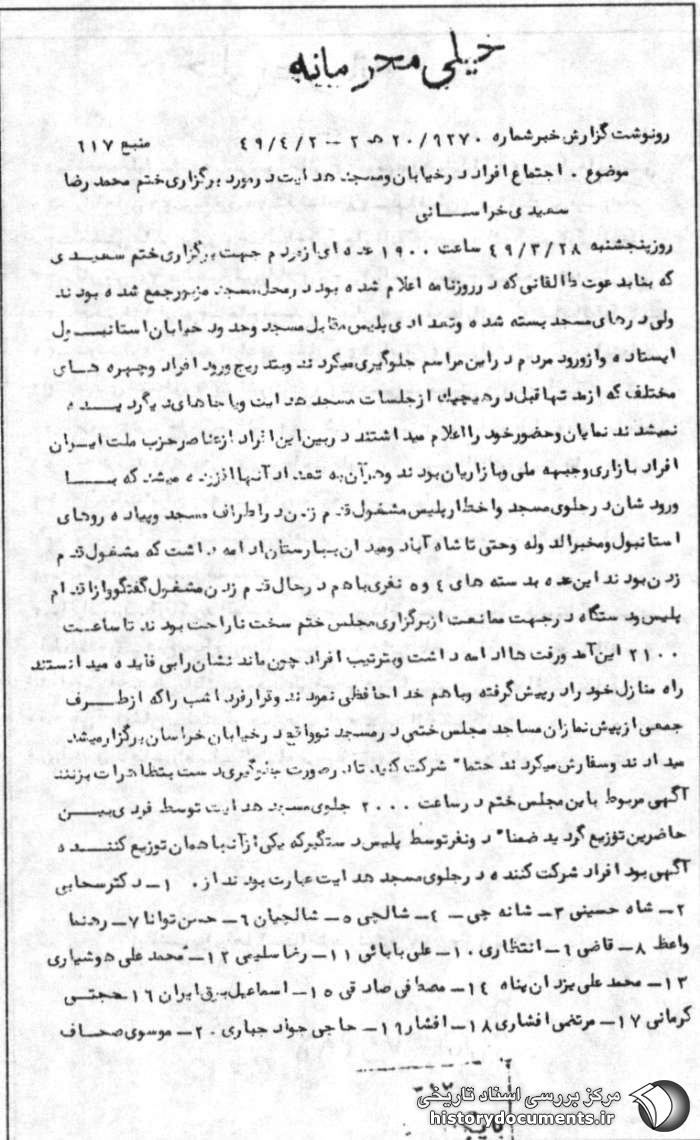 خیلی محرمانه
رونوشت گزارش خبر شماره ۲۰/۹۲۷۰ هـ ۲ — ۴۹/۴/۲ منبع ۶۱۷
موضوع . اجتماع افراد در خیابان ومسجد هدایت در مورد برگزاری ختم محمد رضا
سعیدی خراسانی
روز پنجشنبه ۴۹/۳/۲۸ ساعت ۱۹۰۰ عده ای از مردم جهت برگزاری ختم سعیدی
که بنا بدعوت طالقانی که در روزنامه اعلام شده بود در محل مسجد مزبور جمع شده بودند
ولی درهای مسجد بسته شده وتعدادی پلیس مقابل مسجد وحدود خیابان استانبول
ایستاده واز ورود مردم در این مراسم جلوگیری میکردند وبتدریج ورود افراد وچهره های
مختلف که از مدتها قبل در هیچیک از جلسات مسجد هدایت ویا جاهای دیگر دیده
نمیشدند نمایان وحضور خود را اعلام میداشتند در بین این افراد از عناصر حزب ملت ایران
افراد بازاری وجبهه ملی وبازاریان بودند وهر آن به تعداد آنها افزوده میشد که با
ورودشان در جلوی مسجد واخطار پلیس مشغول قدم زدن در اطراف مسجد وپیاده روهای
استانبول ومخبرالدوله وحتی تا شاه آباد ومیدان بهارستان ادامه داشت که مشغول قدم
زدن بودند این عده بدسته های ۴ و ۵ نفری باهم در حال قدم زدن مشغول گفتگو واز اقدام
پلیس ودستگاه در جهت ممانعت از برگزاری مجلس ختم سخت ناراحت بودند تا ساعت
۲۱۰۰ این آمد ورفت ها ادامه داشت وبترتیب افراد چون ماندنشان رابی فایده میدانستند
راه منازل خود را در پیش گرفته وباهم خداحافظی نمودند وقرار فردا شب را که از طرف
جمعی از پیش نمازان مساجد مجلس ختمی در مسجد نو واقع در خیابان خراسان برگزار میشد
میدادند وسفارش میکردند حتما" شرکت کنید تا در صورت جلوگیری دست بتظاهرات بزنند
آگهی مربوط باین مجلس ختم در ساعت ۲۰۰۰ جلوی مسجد هدایت توسط فردی بین
حاضرین توزیع گردید ضمنا" دونفر توسط پلیس دستگیر که یکی از آنها همان توزیع کننده
آگهی بود افراد شرکت کننده در جلوی مسجد هدایت عبارت بودند از . ۱- دکتر سحابی
۲- شاه حسینی ۳- شانه چی - ۴- شالچی ۵- شالچیان ۶- حسن توانا ۷- رهنما
واعظ ۸- قاضی ۹- انتظاری ۱۰- علی بابائی ۱۱- رضا سلیمی ۱۲- محمد علی هوشیاری
۱۳- محمد علی یزدان پناه ۱۴- مصطفی صادقی ۱۵- اسماعیل برق ایران ۱۶ حجتی
کرمانی ۱۷- مرتضی افشاری ۱۸- افشار ۱۹- حاجی جواد جباری ۲۰- موسوی صحاف
مرکز بررسی اسناد تاریخی
historydocuments.ir